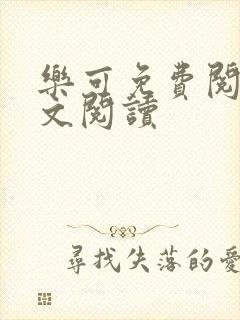 樂可免費閱
文閱讀
尋找失落的愛